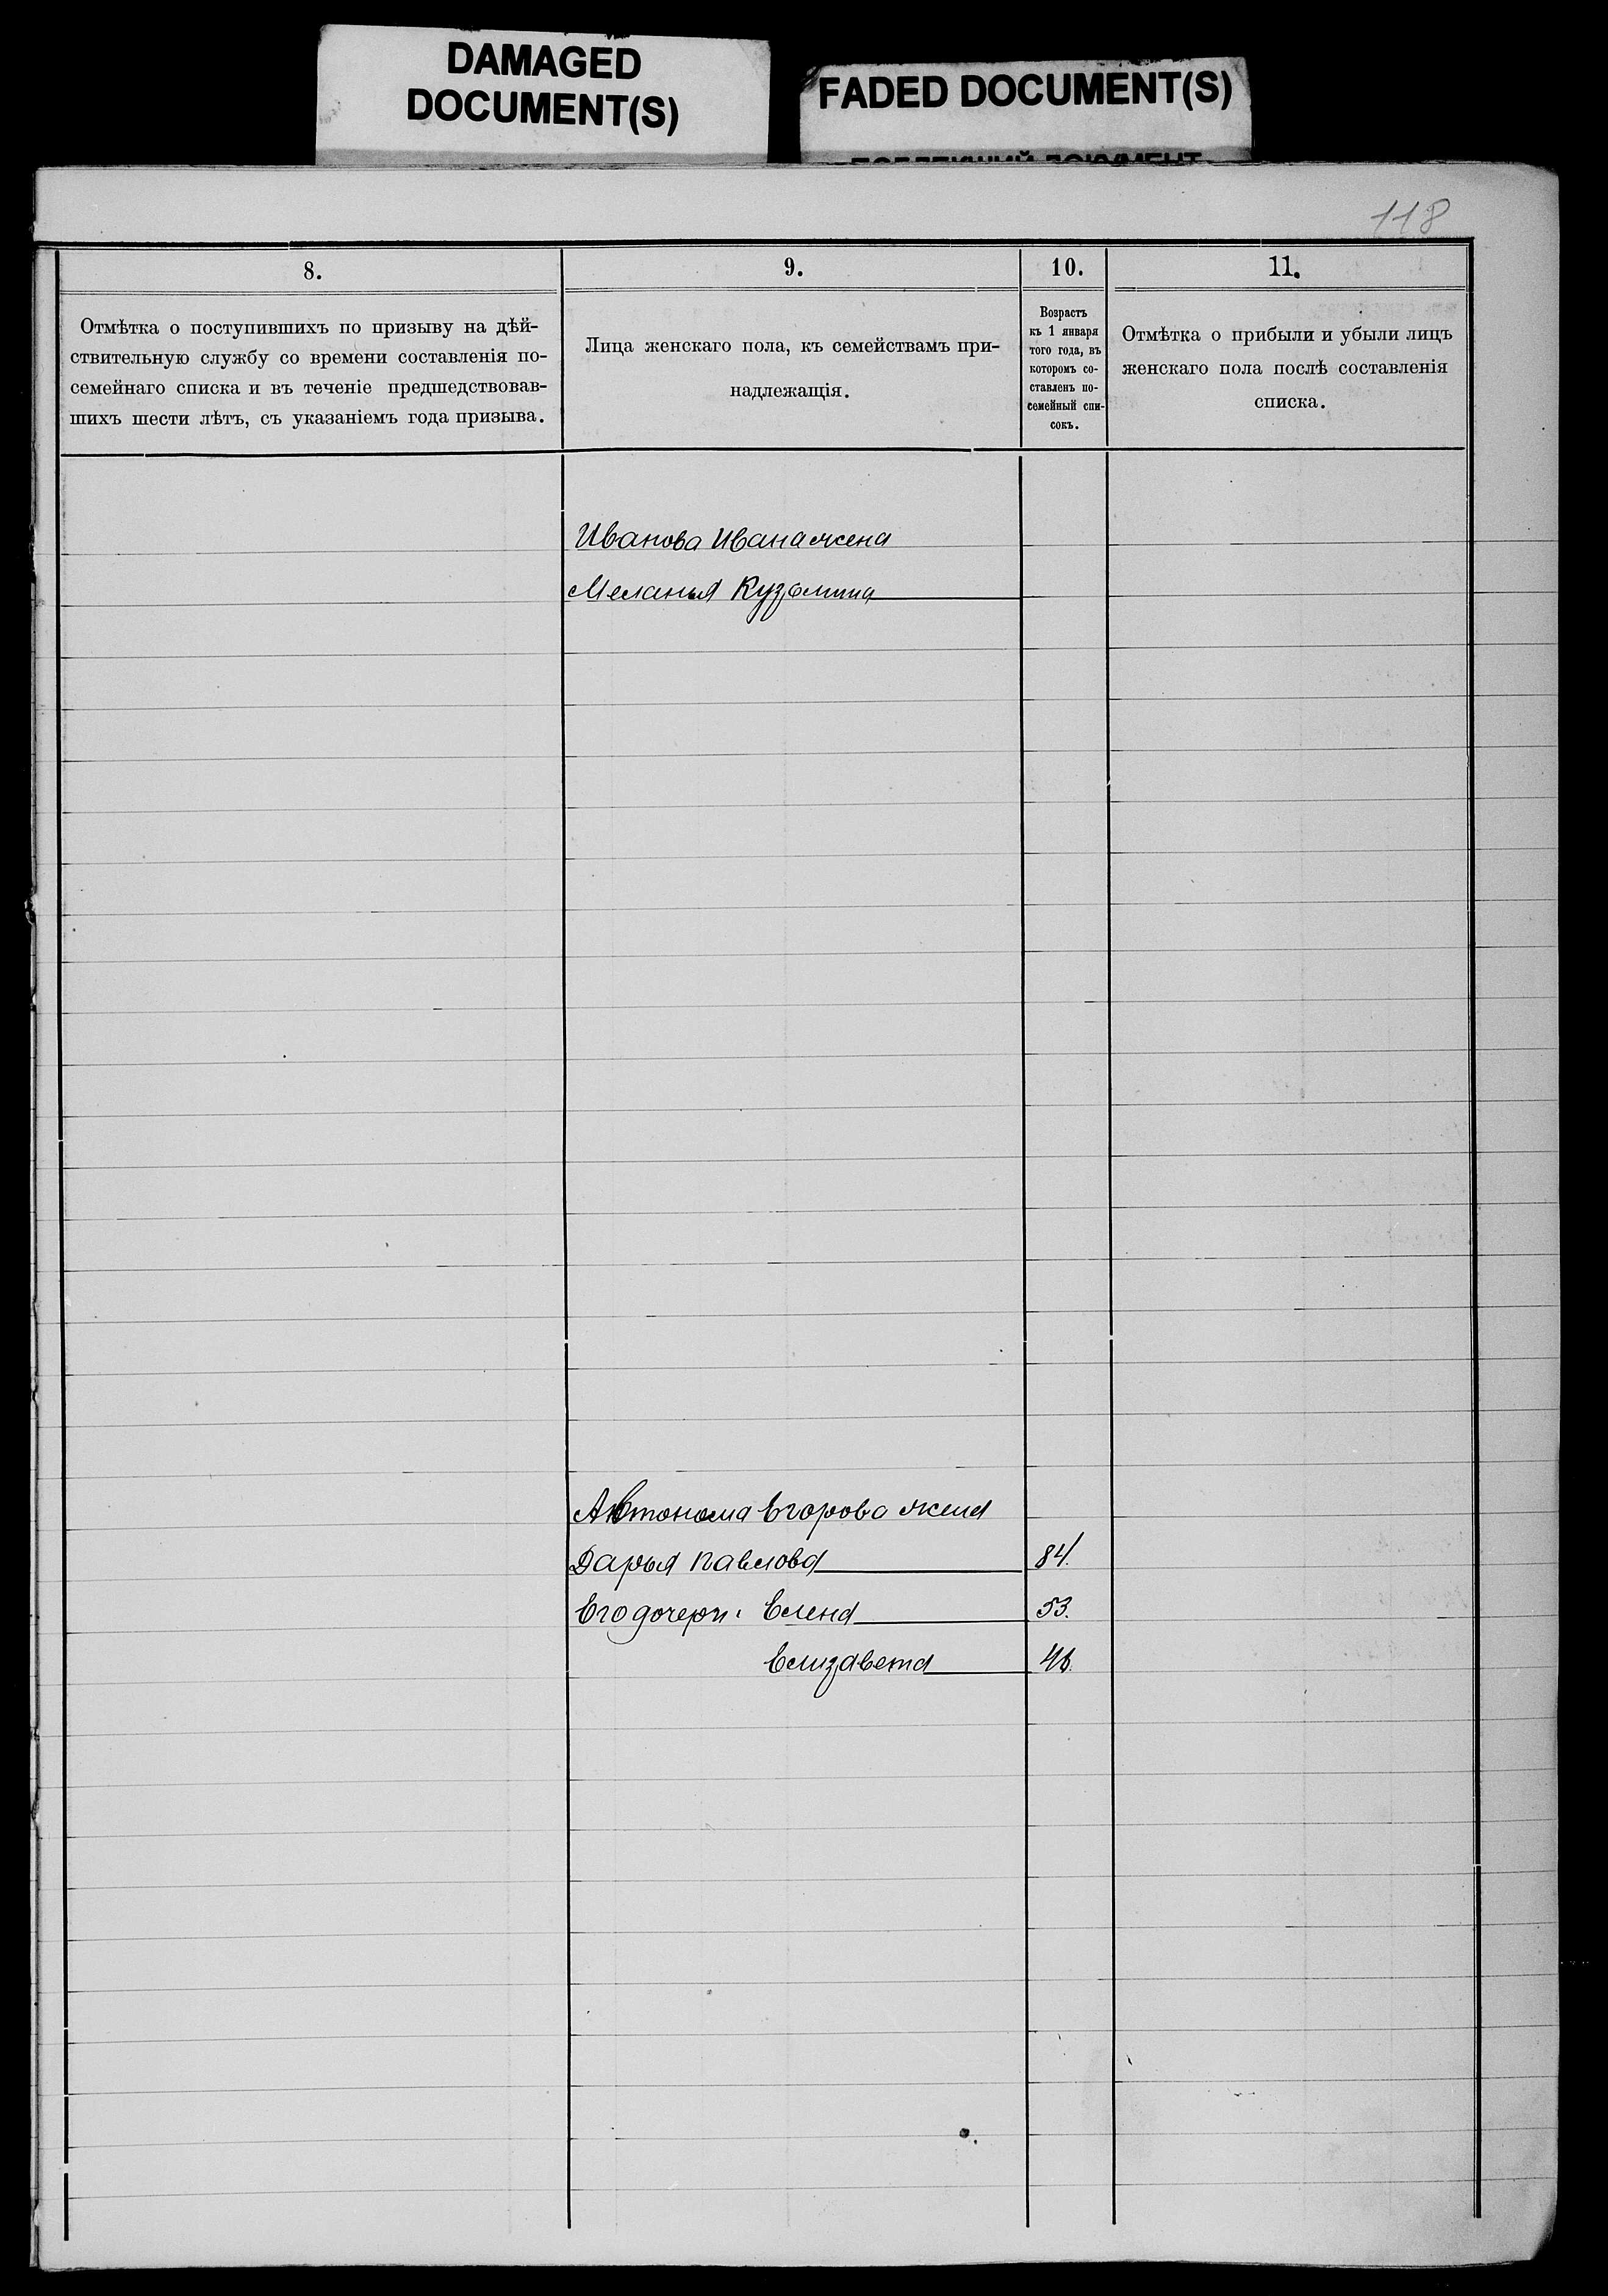 DAMAGED
DOCUMENT(S)
FADED DOCUMENT(S)
118
8.
9.
10.
11.
Отмѣтка о поступившихъ по призыву на дѣй-
ствительную службу со времени составленія по-
семейнаго списка и въ теченіе предшедствовав-
шихъ шести лѣтъ, съ указаніемъ года призыва.
Лица женскаго пола, къ семействамъ при-
надлежащія.
Возрастъ
къ 1 января
того года, въ
которомъ со-
ставленъ по-
семейный спи-
сокъ.
Отмѣтка о прибыли и убыли лицъ
женскаго пола послѣ составленія
списка.
Иванова Ивана жена
Меланья Кузьмина
Автонома Егорова жена
Дарья Павлова 84.
Его дочери: Елена 53.
Елизавета 46.